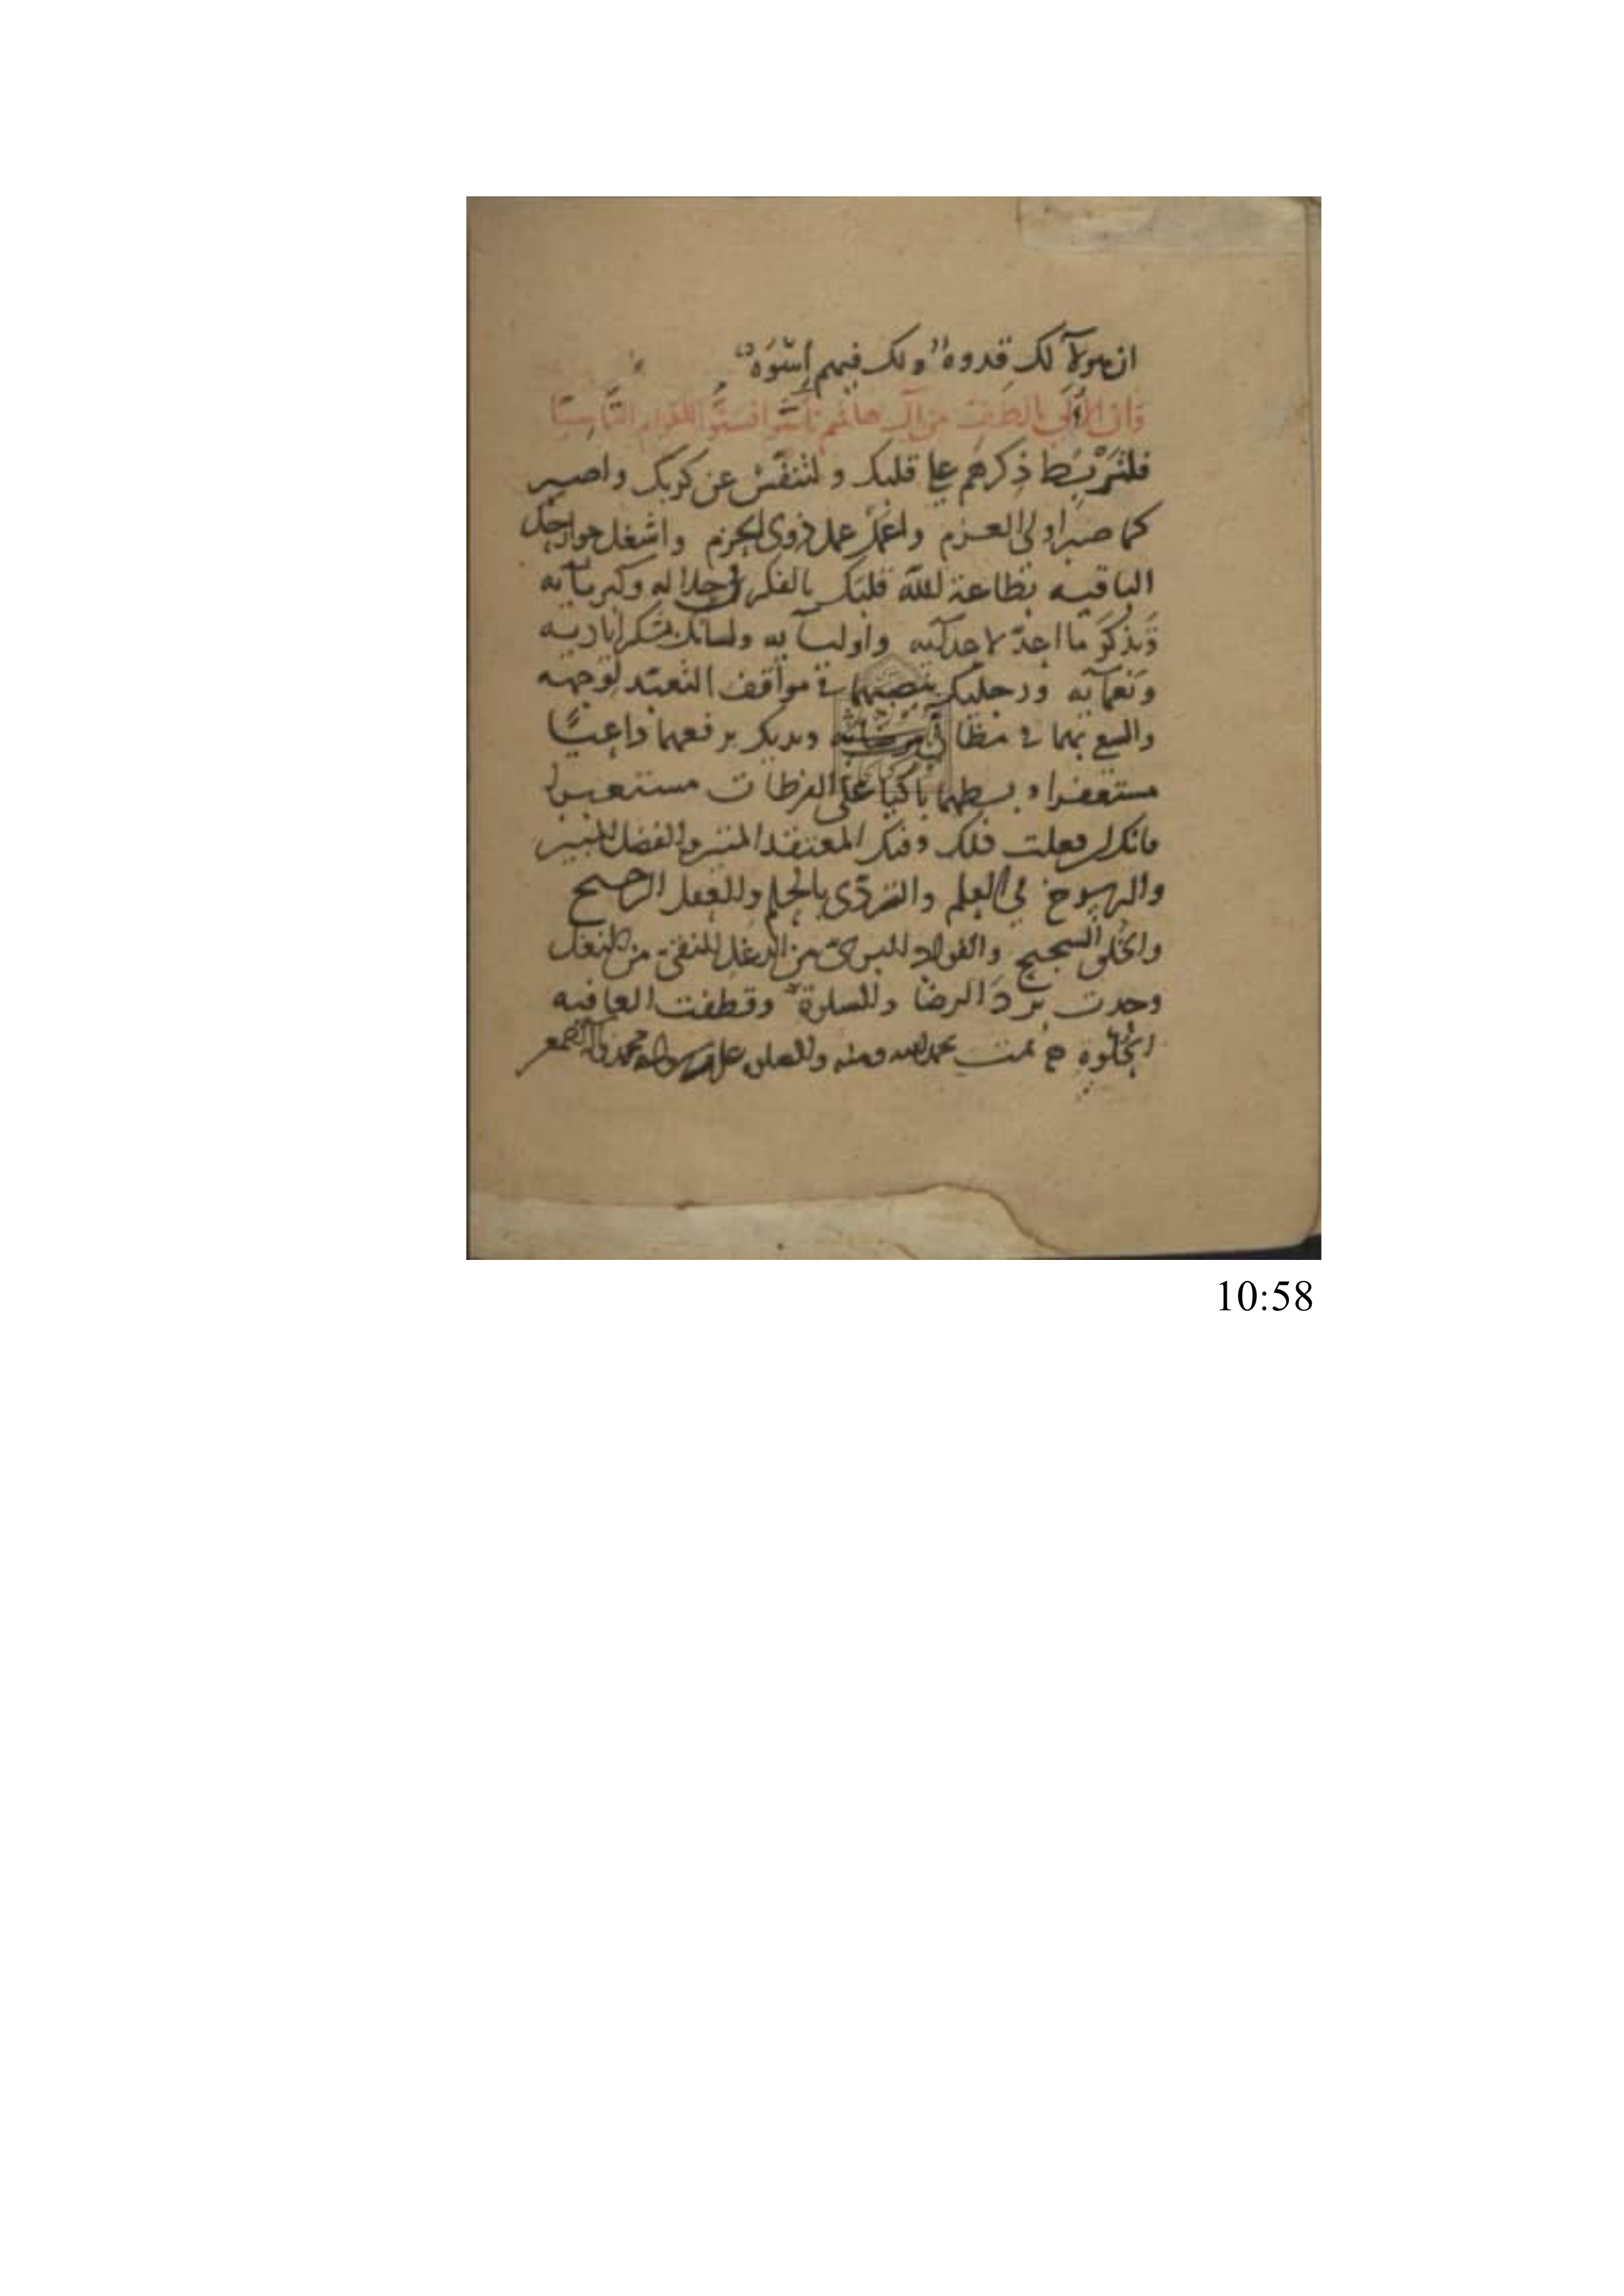 ان هولآ لك قدوة ولك فيهم اسوة
وان الاولى بالطف من آل هاشم تأسوا فسنوا للكرام التآسيا
فلتربط ذكرهم على قلبك ولتنفس عن كربك واصبر
كما صبر اولى العزم واعمل عمل ذوى الحزم واشغل جوارحك
الباقيه بطاعة الله قلبك بالفكر في جلاله وكبريآيه
وتذكر ما اعد لاعدآيه واوليآيه ولسانك بشكر اياديه
ونعمآيه ورجليك بنصبهما في مواقف التعبد لوجهه
والسع بهما في مظان مرضاته ويديك برفعهما داعيا
مستغفرا وبسطهما باكيا على الفرطات مستعبرا
فانك ان فعلت ذلك وفكر المعتقد المنير والفضل
والرسوخ في العلم والتردى بالحلم والعقل الرجيح
والخلق السجيح والفواد البرى من الدغل المنقى من النغل
وجدت برد الرضا والسلوة وقطفت العافيه
الحلوة تمت بحمد الله ومنه والصلوة على رسوله محمد وآله
10:58